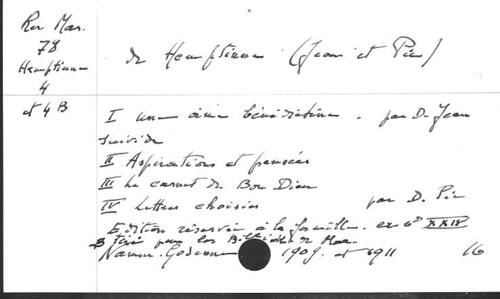 Res. Mar.
78
Hemptinne
4
et 4 B
de Hemptinne (Jean et Pie)
I une âme bénédictine. par D. Jean
suivie de
II Aspirations et pensées
III Le carnet du Bon Dieu
IV Lettres choisies par D. Pie
Edition réservée à la famille. ex. n° XXIV
B tiré pour les Bibl. de Mar.
Namur. Godenne 1909. et 1911 16